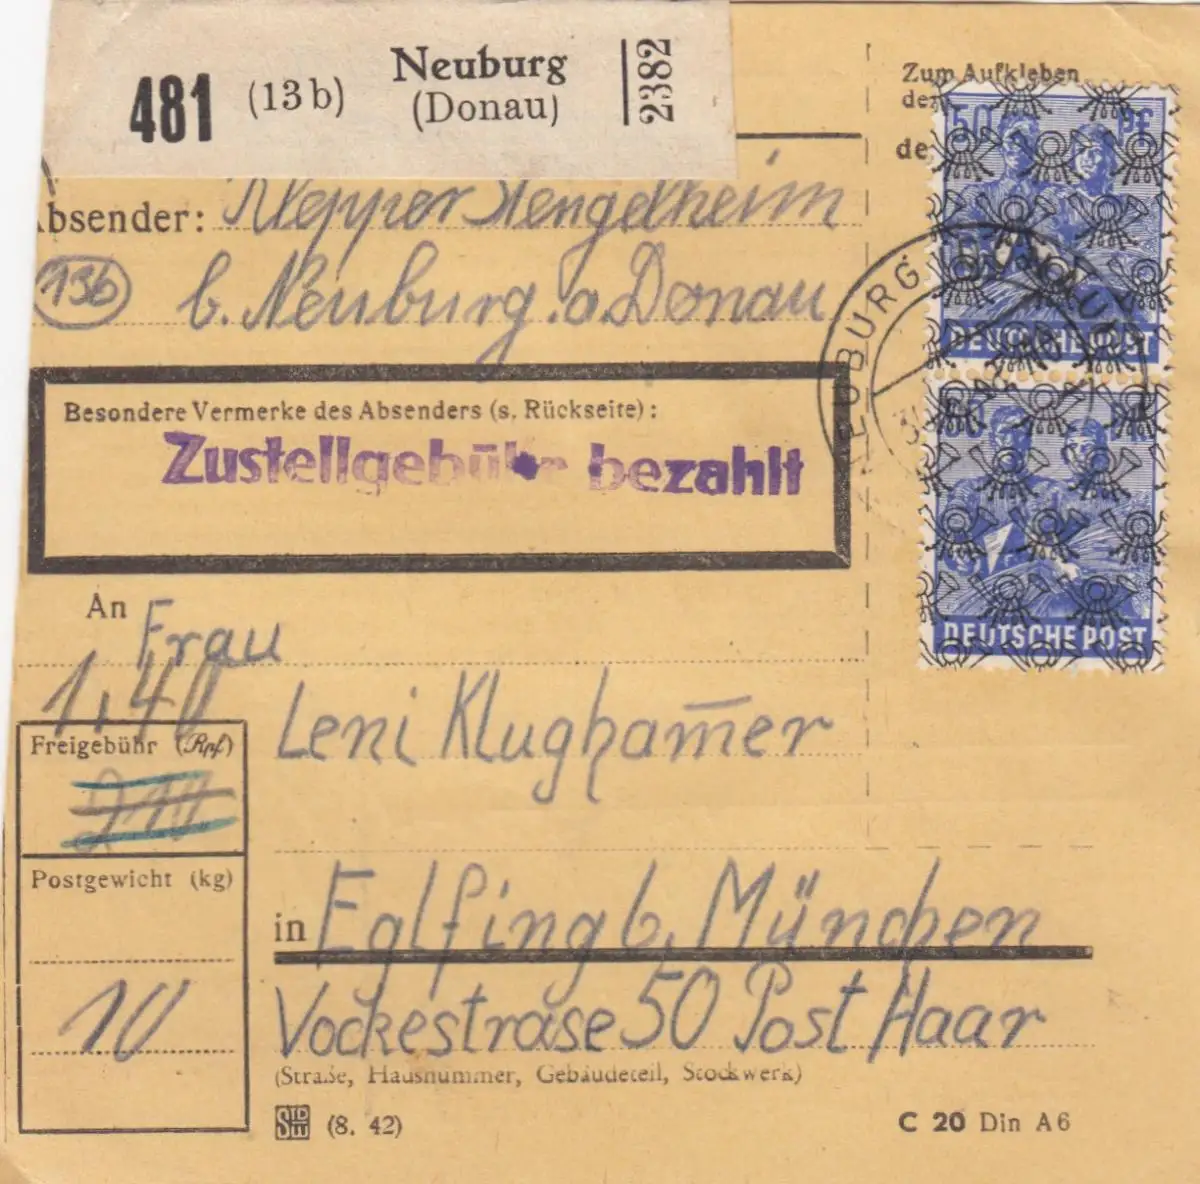 481 (13b) Neuburg (Donau) 2382
Zum Aufkleben
der
de
50 PF
DEUTSCHE POST
DEUTSCHE POST
Absender: Klepper Stengelheim
13b b. Neuburg a. Donau
NEUBURG (DONAU)
Besondere Vermerke des Absenders (s. Rückseite):
Zustellgebühr bezahlt
An Frau
1,40
Freigebühr (Rpf)
Leni Klugham̄er
210
Postgewicht (kg)
in Eglfing b. München
10
Vockestrase 50 Post Haar
(Straße, Hausnummer, Gebäudeteil, Stockwerk)
(8. 42)
C 20 Din A6